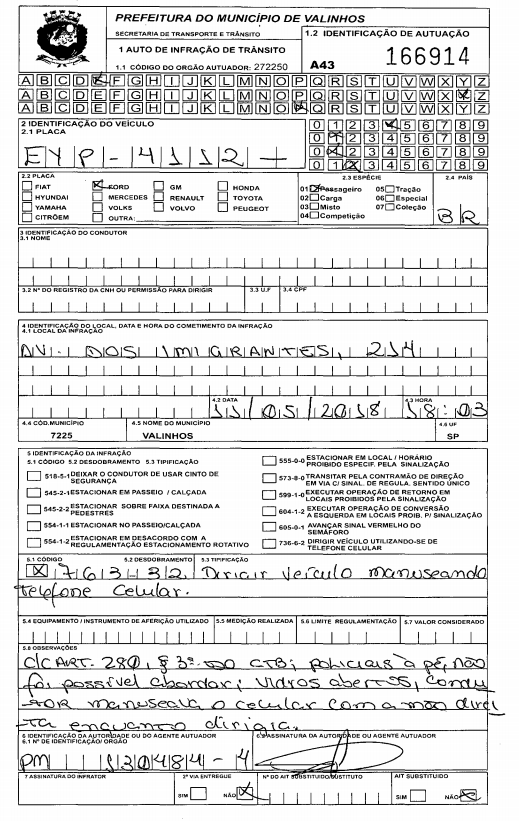 PREFEITURA DO MUNICÍPIO DE VALINHOS
SECRETARIA DE TRANSPORTE E TRÂNSITO
1 AUTO DE INFRAÇÃO DE TRÂNSITO
1.1 CÓDIGO DO ORGÃO AUTUADOR: 272250
1.2 IDENTIFICAÇÃO DE AUTUAÇÃO
A43 166914
A B C D E F G H I J K L M N O P Q R S T U V W X Y Z
A B C D E F G H I J K L M N O P Q R S T U V W X Y Z
A B C D E F G H I J K L M N O P Q R S T U V W X Y Z
2 IDENTIFICAÇÃO DO VEÍCULO
2.1 PLACA
EYP-4112
0 1 2 3 4 5 6 7 8 9
0 1 2 3 4 5 6 7 8 9
0 1 2 3 4 5 6 7 8 9
0 1 2 3 4 5 6 7 8 9
2.2 PLACA
FIAT FORD GM HONDA
HYUNDAI MERCEDES RENAULT TOYOTA
YAMAHA VOLKS VOLVO PEUGEOT
CITRÕEM OUTRA:
2.3 ESPÉCIE
01 Passageiro 05 Tração
02 Carga 06 Especial
03 Misto 07 Coleção
04 Competição
2.4 PAÍS
BR
3 IDENTIFICAÇÃO DO CONDUTOR
3.1 NOME
3.2 Nº DO REGISTRO DA CNH OU PERMISSÃO PARA DIRIGIR 3.3 U.F 3.4 CPF
4 IDENTIFICAÇÃO DO LOCAL, DATA E HORA DO COMETIMENTO DA INFRAÇÃO
4.1 LOCAL DA INFRAÇÃO
AV. DOS IMIGRANTES, 214
4.2 DATA 4.3 HORA
11/05/2018 18:03
4.4 CÓD.MUNICÍPIO 4.5 NOME DO MUNICÍPIO 4.6 UF
7225 VALINHOS SP
5 IDENTIFICAÇÃO DA INFRAÇÃO
5.1 CÓDIGO 5.2 DESDOBRAMENTO 5.3 TIPIFICAÇÃO
518-5-1 DEIXAR O CONDUTOR DE USAR CINTO DE SEGURANÇA
545-2-1 ESTACIONAR EM PASSEIO / CALÇADA
545-2-2 ESTACIONAR SOBRE FAIXA DESTINADA A PEDESTRES
554-1-1 ESTACIONAR NO PASSEIO/CALÇADA
554-1-2 ESTACIONAR EM DESACORDO COM A REGULAMENTAÇÃO ESTACIONAMENTO ROTATIVO
555-0-0 ESTACIONAR EM LOCAL / HORÁRIO PROIBIDO ESPECIF. PELA SINALIZAÇÃO
573-8-0 TRANSITAR PELA CONTRAMÃO DE DIREÇÃO EM VIA C/ SINAL. DE REGULA. SENTIDO ÚNICO
599-1-0 EXECUTAR OPERAÇÃO DE RETORNO EM LOCAIS PROIBIDOS PELA SINALIZAÇÃO
604-1-2 EXECUTAR OPERAÇÃO DE CONVERSÃO A ESQUERDA EM LOCAIS PROIB. P/ SINALIZAÇÃO
605-0-1 AVANÇAR SINAL VERMELHO DO SEMÁFORO
736-6-2 DIRIGIR VEÍCULO UTILIZANDO-SE DE TELEFONE CELULAR
5.1 CÓDIGO 5.2 DESDOBRAMENTO 5.3 TIPIFICAÇÃO
763-32 Dirigir veículo manuseando
telefone celular.
5.4 EQUIPAMENTO / INSTRUMENTO DE AFERIÇÃO UTILIZADO 5.5 MEDIÇÃO REALIZADA 5.6 LIMITE REGULAMENTAÇÃO 5.7 VALOR CONSIDERADO
5.8 OBSERVAÇÕES
C/C ART. 280, § 3º DO CTB; policiais à pé, não
foi possível abordar; vidros abertos, condu
tor manuseava o celular com a mão direi
ta enquanto dirigia.
6 IDENTIFICAÇÃO DA AUTORIDADE OU DO AGENTE AUTUADOR
6.1 Nº DE IDENTIFICAÇÃO/ ORGÃO
PM 130484-4
6.2 ASSINATURA DA AUTORIDADE OU AGENTE AUTUADOR
7 ASSINATURA DO INFRATOR 2ª VIA ENTREGUE Nº DO AIT SUBSTITUIDO/SUBSTITUTO AIT SUBSTITUIDO
SIM NÃO SIM NÃO